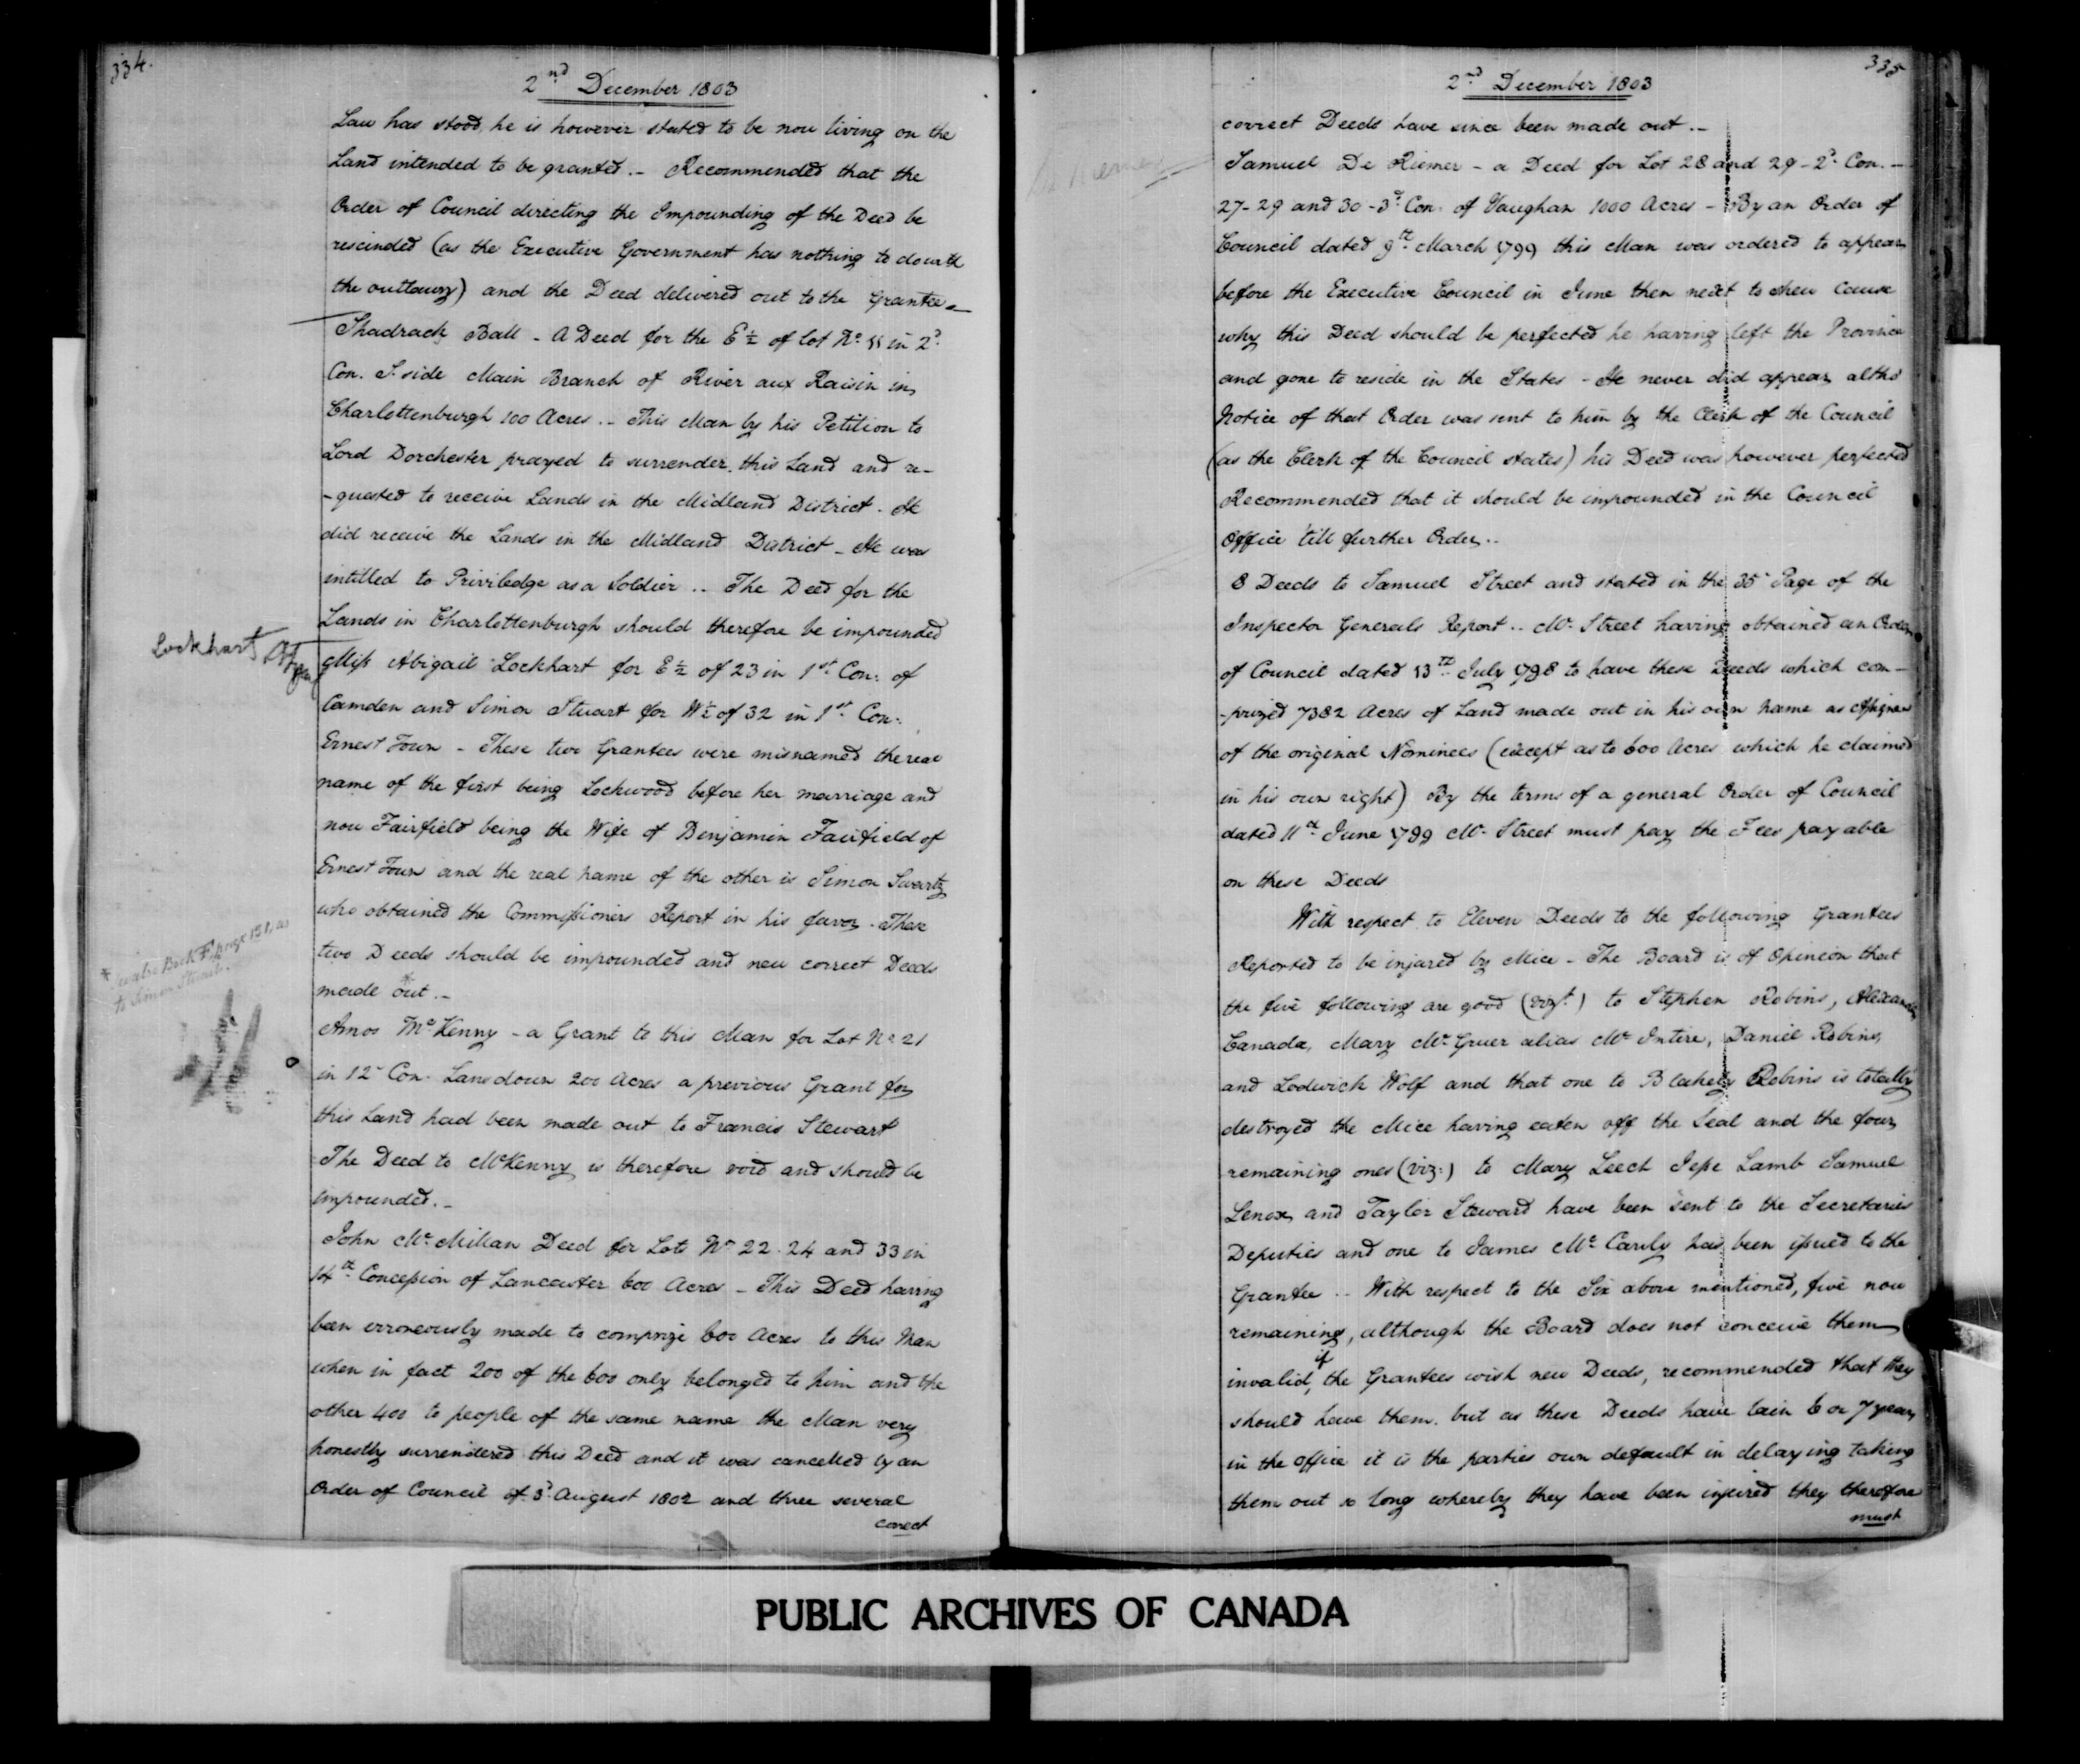 334.
2nd December 1803
Law has stood, he is however stated to be now living on the
Land intended to be granted. - Recommended that the
Order of Council directing the Impounding of the Deed be
rescinded (as the Executive Government has nothing to do with
the outlawry) and the Deed delivered out to the Grantee -
Shadrach Ball - A Deed for the E ½ of Lot No 11 in 2d
Con. S. side Main Branch of River aux Raisin in
Charlottenburgh 100 Acres .. This Man by his Petition to
Lord Dorchester prayed to surrender this Land and re-
-quested to receive Lands in the Midland District. He
did receive the Lands in the Midland District - He was
intitled to Priviledge as a Soldier .. The Deed for the
Lands in Charlottenburgh should therefore be impounded
Lockhart
Miss Abigail Lockhart for E ½ of 23 in 1st Con: of
Camden and Simon Stuart for W ½ of 32 in 1st Con.
Ernest Town - These two Grantees were misnamed the real
name of the first being Lockwood before her marriage and
now Fairfield being the Wife of Benjamin Fairfield of
Ernest Town and the real name of the other is Simon Swartz
who obtained the Commissioners Report in his favor. These
two Deeds should be impounded and new correct Deeds
made out. -
* see also Book F, page 151, as
to Simon Stuart.
Amos McKenny - a Grant to this Man for Lot No 21
in 12 Con. Lansdown 200 Acres a previous Grant for
this Land had been made out to Francis Stewart
The Deed to McKenny is therefore void and should be
impounded. -
John McMillan Deed for Lots No 22. 24 and 33 in
14th Concession of Lancaster 600 Acres - This Deed having
been erroneously made to comprize 600 Acres to this Man
when in fact 200 of the 600 only belonged to him and the
other 400 to people of the same name the Man very
honestly surrendered this Deed and it was cancelled by an
Order of Council of 3d August 1802 and three several
correct
335
2nd December 1803
correct Deeds have since been made out. -
Samuel De Riemer - a Deed for Lot 28 and 29 - 2d Con. -
27 - 29 and 30 - 3d Con. of Vaughan 1000 Acres - By an Order of
Council dated 9th March 1799 this Man was ordered to appear
before the Executive Council in June then next to shew Cause
why this Deed should be perfected he having left the Province
and gone to reside in the States - He never did appear altho'
Notice of that Order was sent to him by the Clerk of the Council
(as the Clerk of the Council states) his Deed was however perfected
Recommended that it should be impounded in the Council
Office 'till further Order ..
8 Deeds to Samuel Street and stated in the 35 Page of the
Inspector Generals Report .. Mr Street having obtained an Order
of Council dated 13th July 1798 to have these Deeds which com-
-prized 7382 Acres of Land made out in his own name as Assignee
of the original Nominees (except as to 600 Acres which he claimed
in his own right) By the terms of a general Order of Council
dated 11th June 1799 Mr Street must pay the Fees payable
on these Deeds
With respect to Eleven Deeds to the following Grantees
Reported to be injured by Mice - The Board is of Opinion that
the five following are good (vizt.) to Stephen Robins, Alexander
Canada, Mary McGruer alias McIntire, Daniel Robins,
and Lodwick Wolf and that one to Blakely Robins is totally
destroyed the Mice having eaten off the Seal and the four
remaining ones (viz:) to Mary Leech Jesse Lamb Samuel
Lenox and Taylor Steward have been sent to the Secretaries
Deputies and one to James McCauly has been issued to the
Grantee .. With respect to the Six above mentioned, five now
remaining, although the Board does not conceive them
invalid, if the Grantees wish new Deeds, recommended that they
should have them. but as these Deeds have lain 6 or 7 years
in the Office it is the parties own default in delaying taking
them out so long whereby they have been injured they therefore
must
PUBLIC ARCHIVES OF CANADA